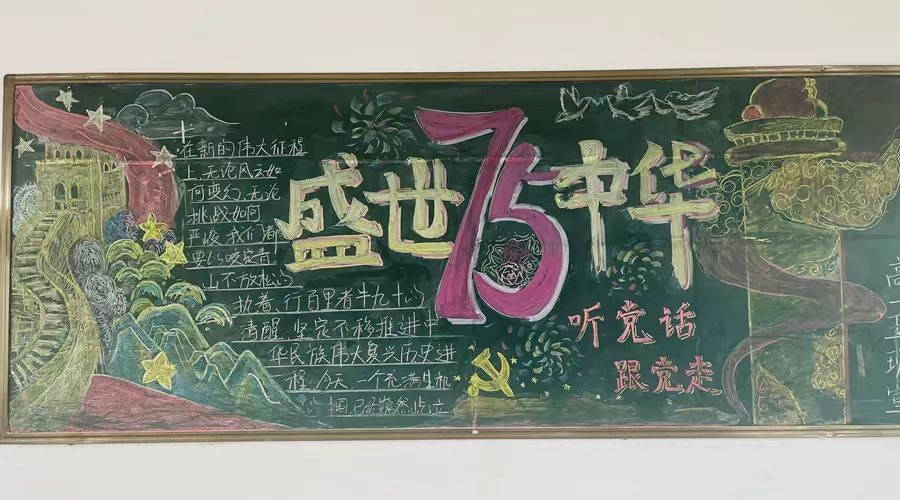 在新的伟大征程
上,无论风云如
何变幻,无论
挑战如何
严峻,我们都
要以咬定青
山不放松的
执着、行百里者半九十的
清醒,坚定不移推进中
华民族伟大复兴历史进
程。今天,一个充满生机
的中国已经巍然屹立
盛世75中华
听党话
跟党走
高一
班
宣